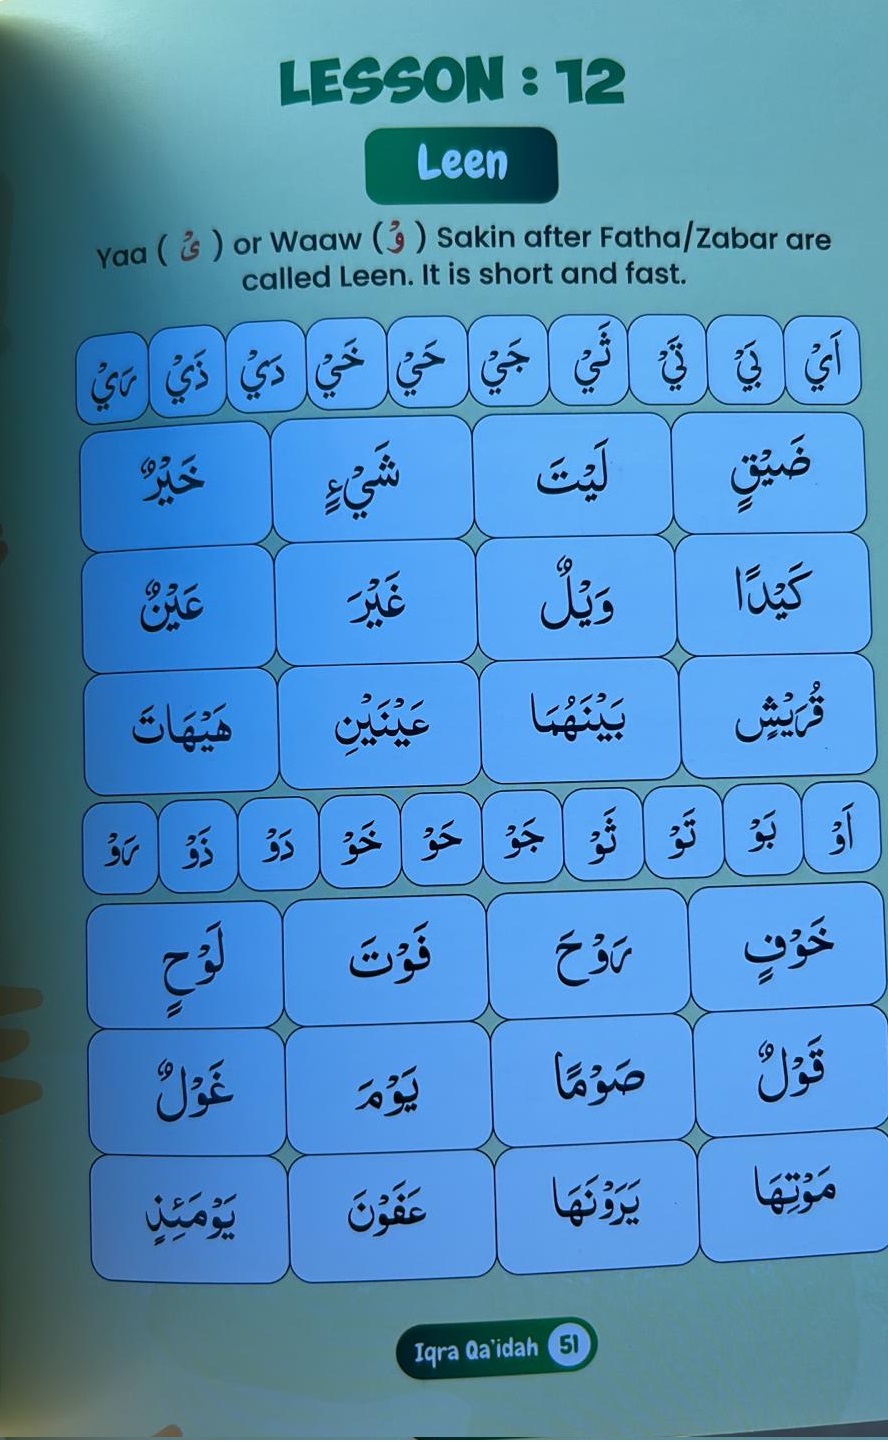 LESSON : 12
Leen
Yaa ( ىْ ) or Waaw ( وْ ) Sakin after Fatha/Zabar are
called Leen. It is short and fast.
اَيْ بَيْ تَيْ ثَيْ جَيْ حَيْ خَيْ دَيْ ذَيْ رَيْ
ضَيْقٍ لَيْتَ شَيْءٍ خَيْرٌ
كَيْدًا وَيْلٌ غَيْرَ عَيْنٌ
قُرَيْشٍ بَيْنَهُمَا عَيْنَيْنِ هَيْهَاتَ
اَوْ بَوْ تَوْ ثَوْ جَوْ حَوْ خَوْ دَوْ ذَوْ رَوْ
خَوْفٍ رَوْحَ فَوْتَ لَوْحٍ
قَوْلٌ صَوْمًا يَوْمَ غَوْلٌ
مَوْتِهَا يَرَوْنَهَا عَفَوْنَ يَوْمَئِذٍ
Iqra Qa'idah 51